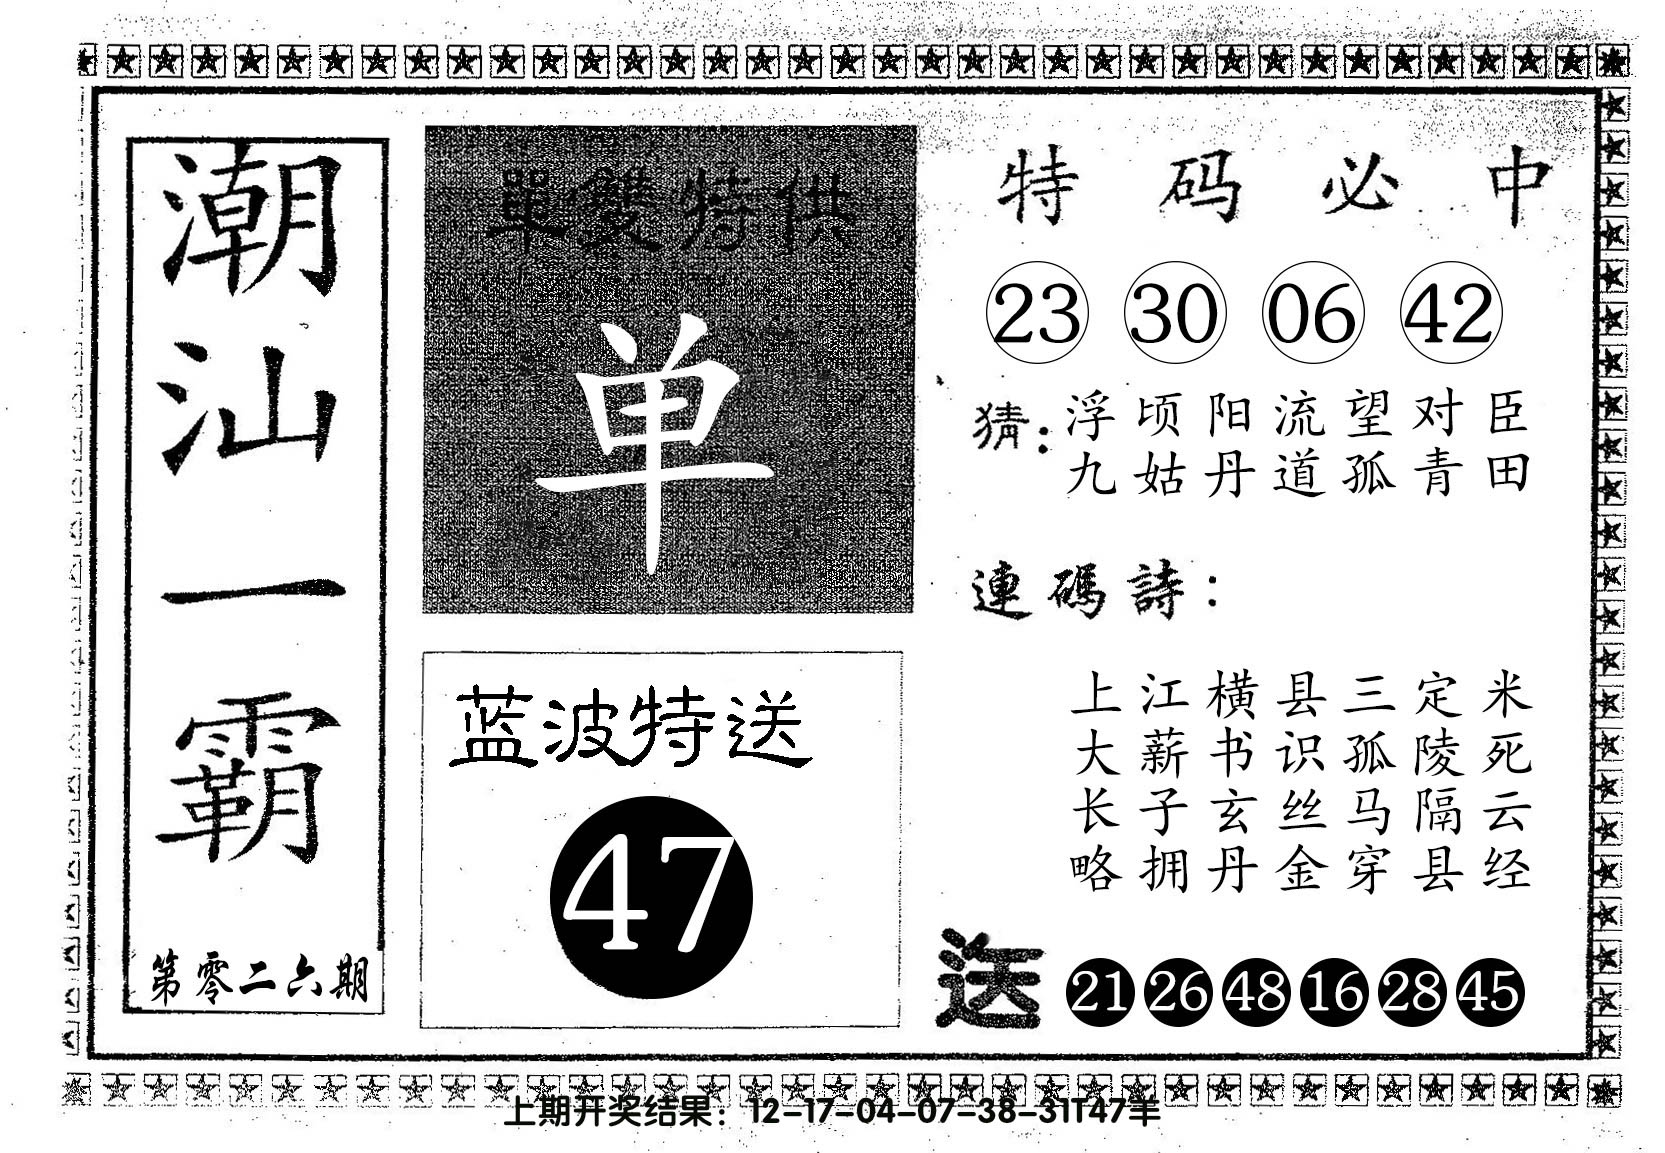 潮汕一霸
第零二六期
單雙特供
单
蓝波特送
47
特码必中
23 30 06 42
猜：浮顷阳流望对臣
九姑丹道孤青田
連碼詩：
上江横县三定米
大薪书识孤陵死
长子玄丝马隔云
略拥丹金穿县经
送 21 26 48 16 28 45
上期开奖结果：12-17-04-07-38-31T47羊